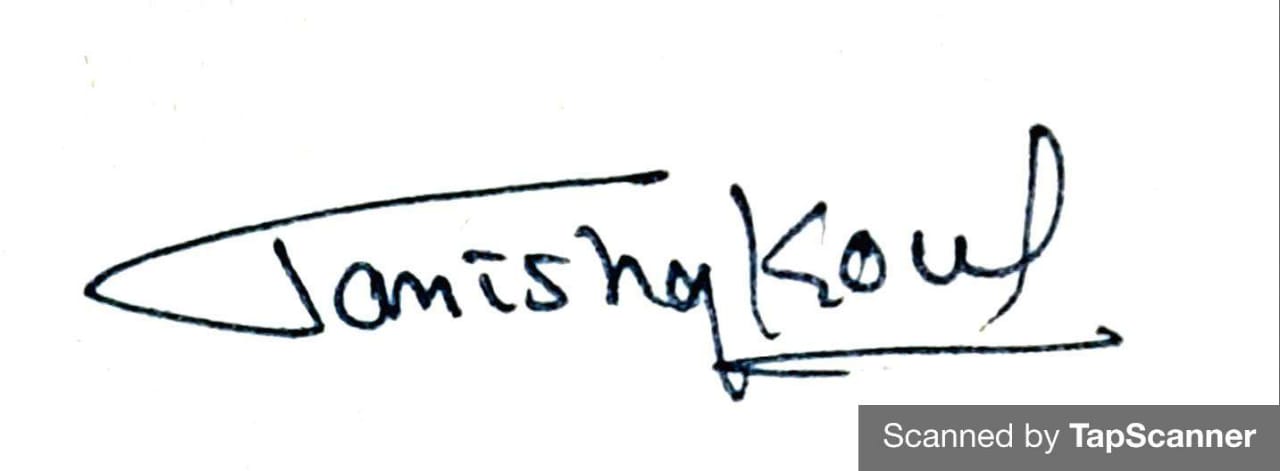 Tanishq Koul
Scanned by TapScanner